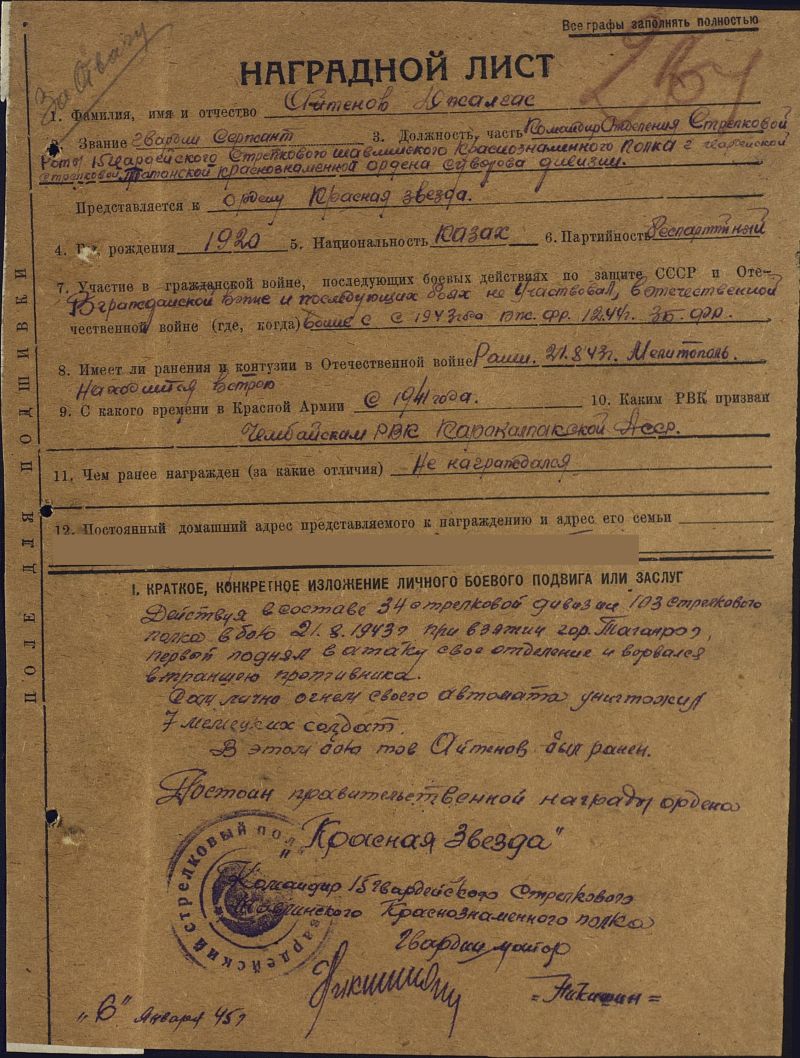 Все графы заполнять полностью
За отвагу
НАГРАДНОЙ ЛИСТ
1. Фамилия, имя и отчество Айтенов Джалгас
2. Звание гвардии Сержант 3. Должность, часть Командир Отделения Стрелковой
Роты 15 Гвардейского Стрелкового Краснознаменного полка 2 гвардейской
стрелковой Таманской краснознаменной ордена Суворова дивизии.
Представляется к ордену Красная звезда.
4. Год рождения 1920 5. Национальность Казах 6. Партийность беспартийный
7. Участие в гражданской войне, последующих боевых действиях по защите СССР и Оте-
В гражданской войне и последующих боях не участвовал, в отечественной
чественной войне (где, когда) войне с с 1943 года
8. Имеет ли ранения и контузии в Отечественной войне Ранен. 21.8.43г. Мелитополь.
Находится в строю
9. С какого времени в Красной Армии С 1941 года. 10. Каким РВК призван
Чембайским РВК Каракалпакской Асср.
11. Чем ранее награжден (за какие отличия) Не награждался
12. Постоянный домашний адрес представляемого к награждению и адрес его семьи
I. КРАТКОЕ, КОНКРЕТНОЕ ИЗЛОЖЕНИЕ ЛИЧНОГО БОЕВОГО ПОДВИГА ИЛИ ЗАСЛУГ
Действуя в составе 34 стрелковой дивизии 103 стрелкового
полка в бою 21.8.1943г при взятии гор. Таганрог,
первый поднял в атаку свое отделение и ворвался
в траншею противника.
Сам лично огнем своего автомата уничтожил
7 немецких солдат.
В этом бою тов Айтенов был ранен.
Достоин правительственной награды ордена
"Красная Звезда"
Командир 15 гвардейского Стрелкового
Краснознаменного полка
Гвардии майор
= Никишин =
"6" Января 45г
ПОЛЕ ДЛЯ ПОДШИВКИ
гвардейский стрелковый полк